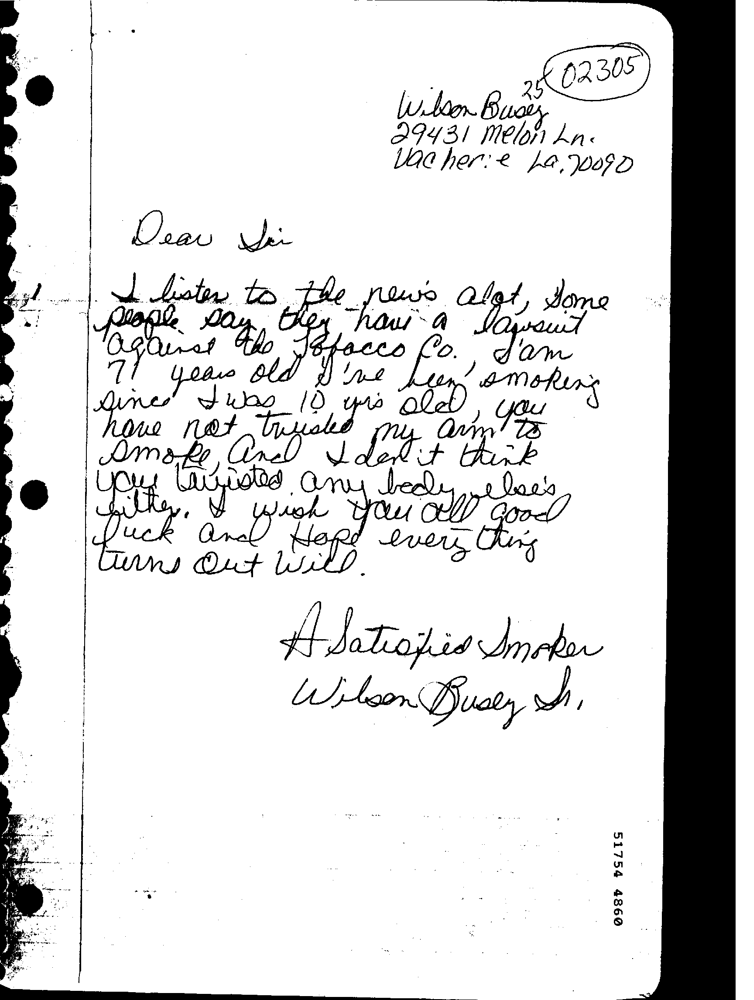 02305
25
Wilson Busey
29431 Melon Ln.
Vacherie La. 70090
Dear Sir
I listen to the news alot, Some
people say they have a lawsuit
against the Tobacco Co. I'am
71 years old I've been smoking
since I was 10 yrs old, you
have not twisted my arm to
smoke, and I don't think
you twisted any body else's
either. I wish you all good
luck and Hope every thing
turns Out Will.
A Satisfied Smoker
Wilson Busey Sr.
51754 4860